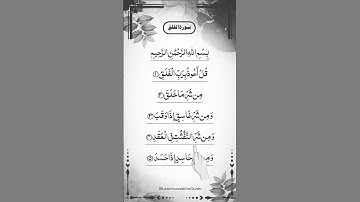 سورة الفلق
بِسْمِ اللَّهِ الرَّحْمَٰنِ الرَّحِيمِ
قُلْ أَعُوذُ بِرَبِّ الْفَلَقِ ①
مِن شَرِّ مَا خَلَقَ ②
وَمِن شَرِّ غَاسِقٍ إِذَا وَقَبَ ③
وَمِن شَرِّ النَّفَّٰثَٰتِ فِي الْعُقَدِ ④
وَمِن حَاسِدٍ إِذَا حَسَدَ ⑤